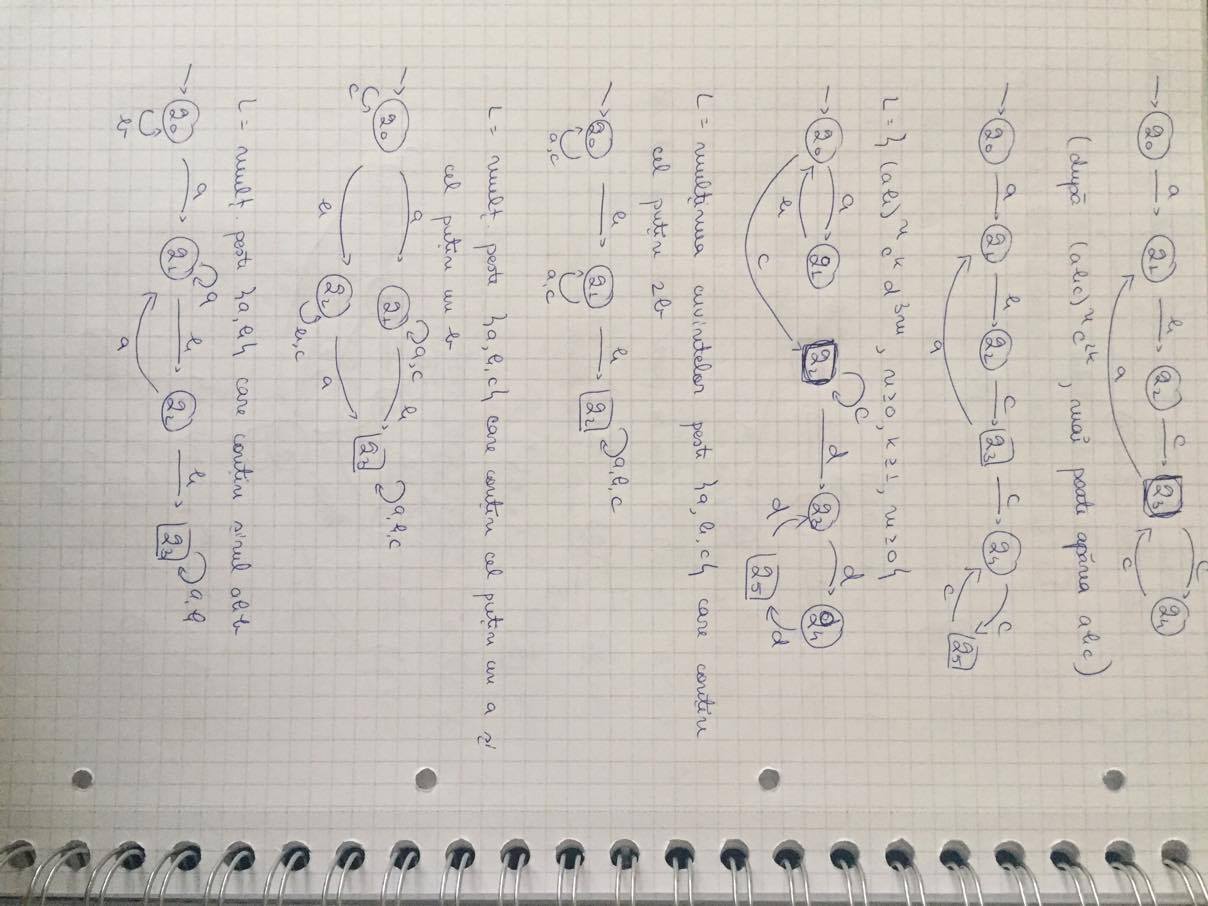 → q₀ a q₁ b q₂ c q₃ c q₄
a c
(după (abc)ⁿ c²ᵏ, mai poate apărea abc)
→ q₀ a q₁ b q₂ c q₃ c q₄ c q₅
a c
L = { (ab)ⁿ cᵏ d³ᵐ, n≥0, k≥1, m≥0}
→ q₀ a q₁ q₂ c d q₃ d q₄
b c d q₅ d
L = mulțimea cuvintelor peste {a, b, c} care conțin
cel puțin 2b
→ q₀ b q₁ b q₂ a,b,c
a,c a,c
L = mulț. peste {a, b, c} care conțin cel puțin un a și
cel puțin un b
→ q₀ a q₁ a,c b q₃ a,b,c
c b q₂ b,c a
L = mulț. peste {a, b} care conțin șirul abb
→ q₀ a q₁ a b q₂ b q₃ a,b
b a